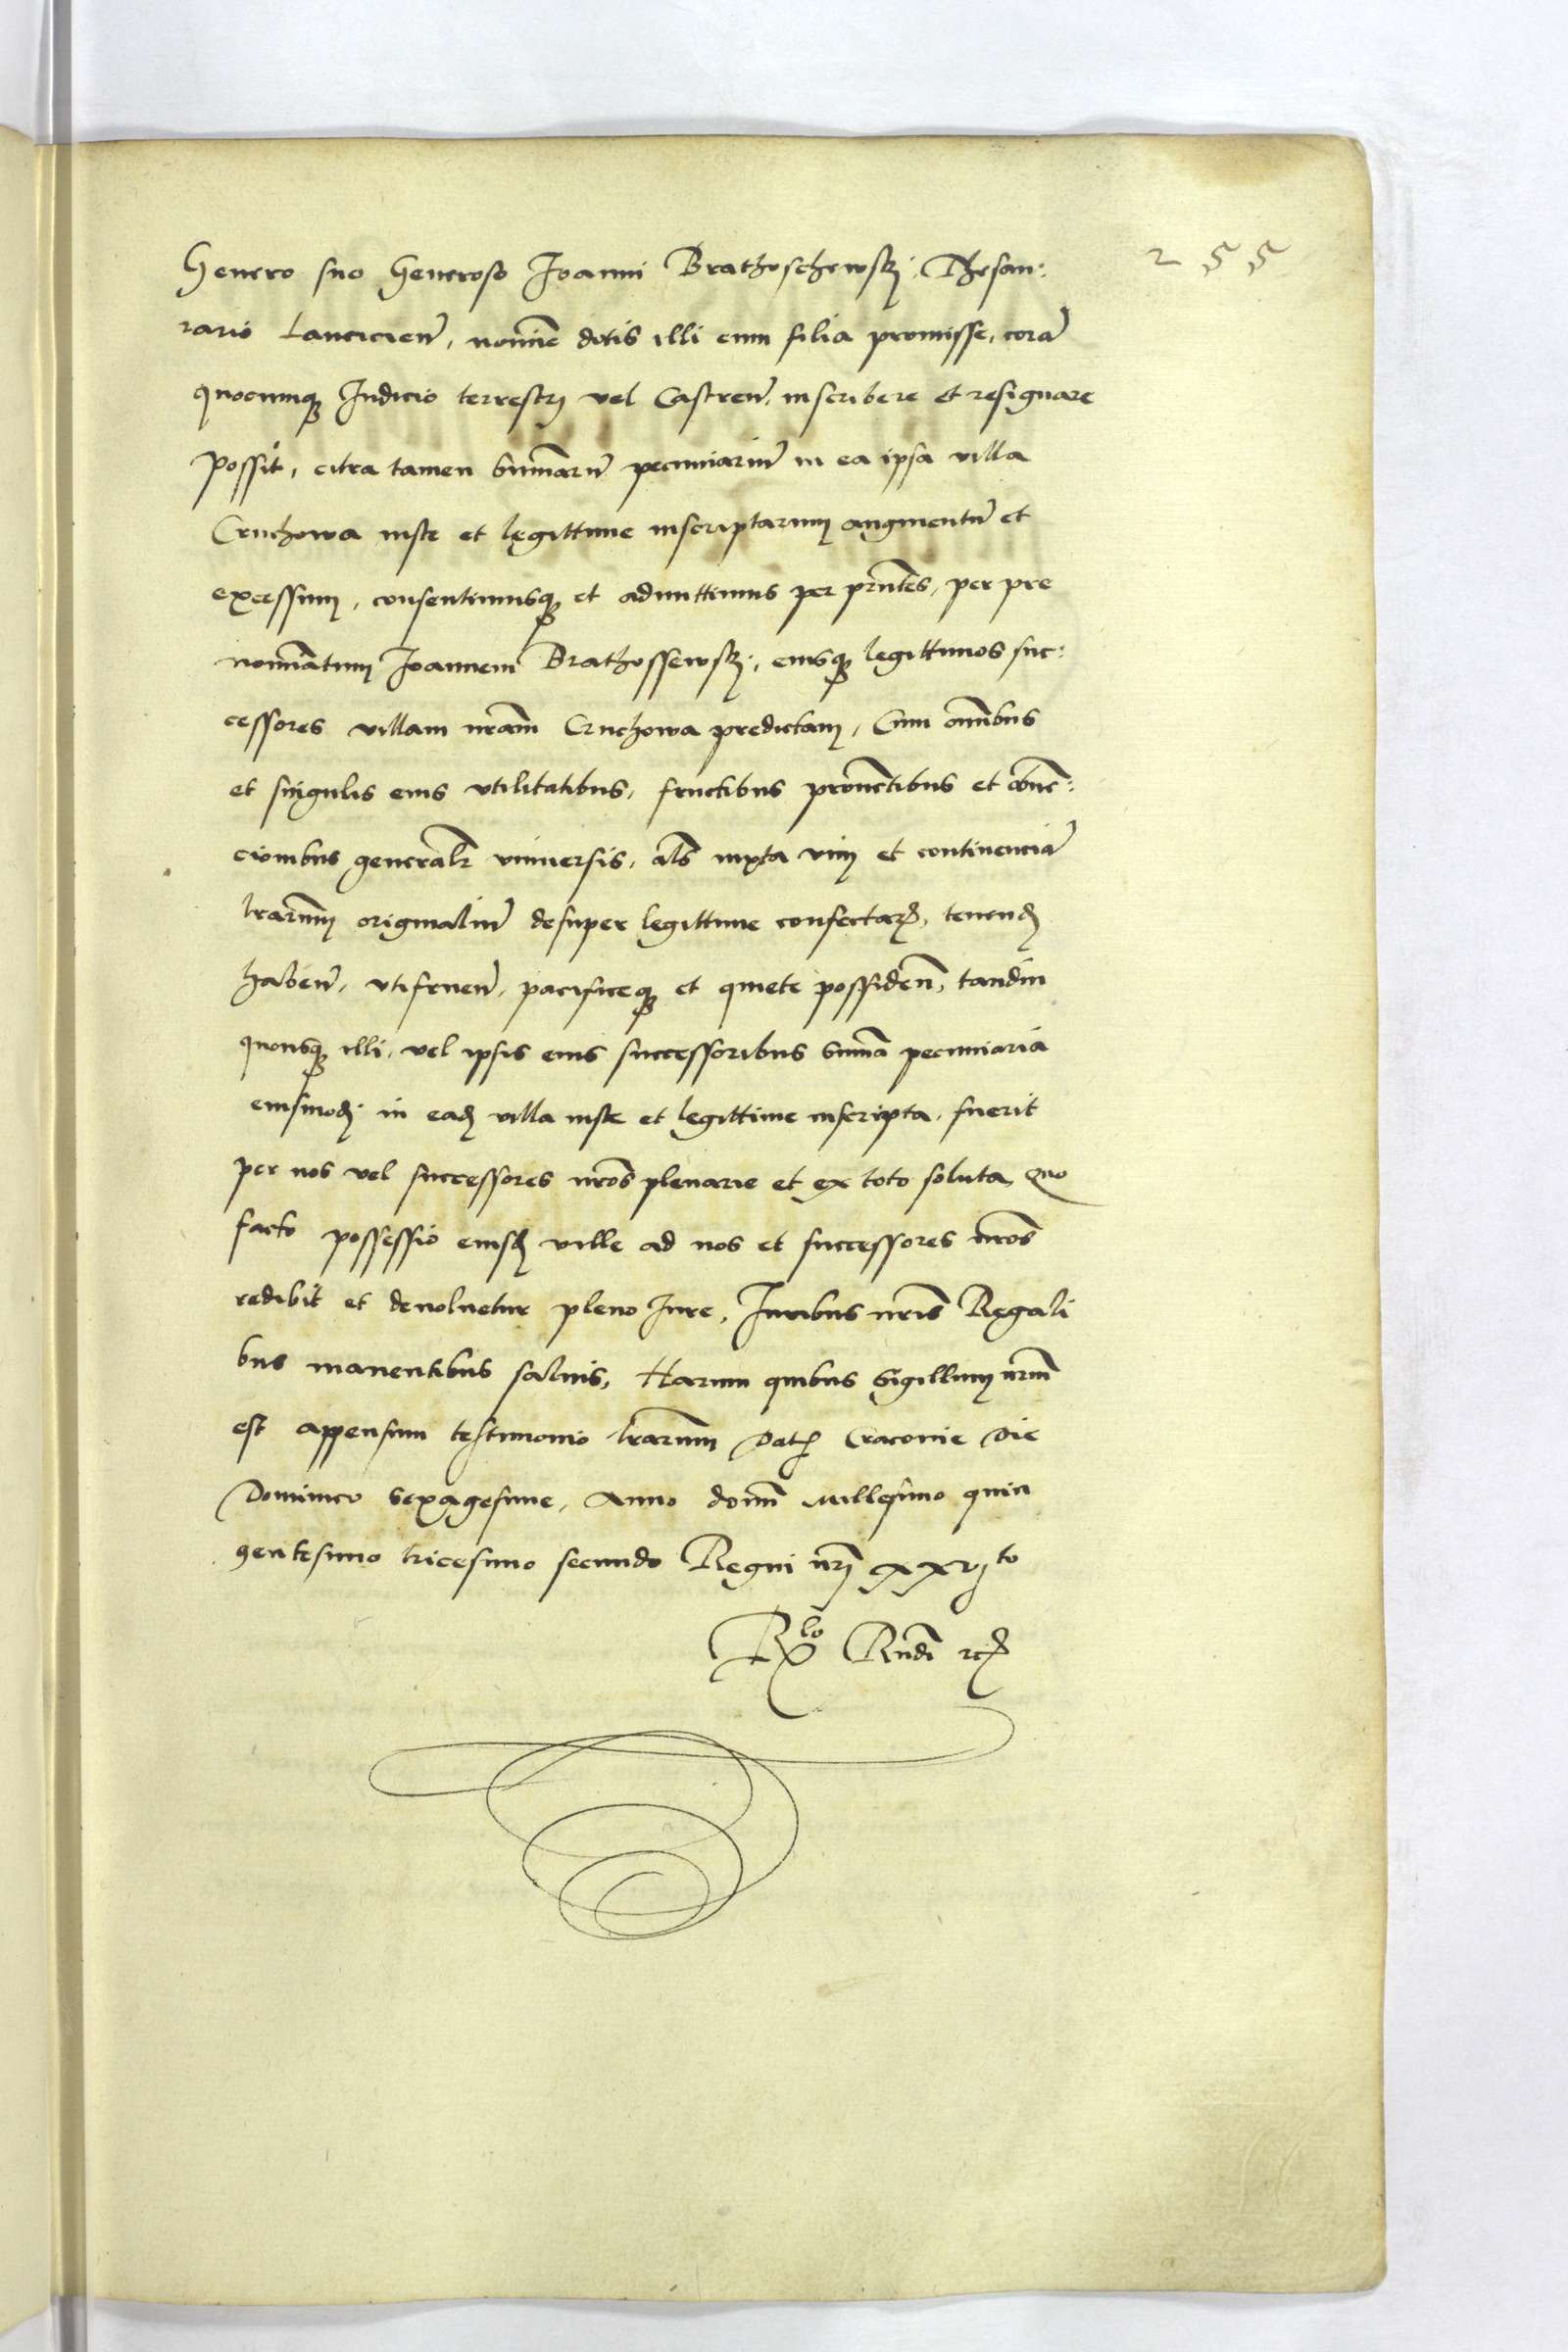 255
Genero suo Generoso Joanni Brathoschewskj Thesau:
rario Lancicien̄, nomīe dotis illi cum filia promisse, corā
quocumq̧ Iudicio terrestrj vel Castren̄ inscribere et resignare
possit, citra tamen summarū pecuniariū in ea ipsa villa
Cruchowa iuste et legittime inscriptarum augmentū et
excessum, consentimusq̧ et admittimus per pñtes, per pre
nomīatum Joannem Brathossewskj, eiusq̧ legittimos suc:
cessores villam nr̄am Cruchowa predictam, Cum omībus
et singulis eius vtilitatibus, fructibus prouentibus et obuē:
cionibus generalr̄ vniuersis, als̄ iuxta vim et continenciā
lr̄arum originaliū desuper legittime confectarꝝ, tenend
haben̄, vtifruen̄, pacificeq̧ et quiete possiden̄, tandiu
quousq̧ illi, vel ipsis eius successoribus summa pecuniaria
eiusmodj in ead villa iuste et legittime inscripta, fuerit
per nos vel successores nr̄os plenarie et ex toto soluta, Quo
facto possessio eiusd ville ad nos et successores nr̄os
redibit et deuoluetur pleno Iure, Iuribus nr̄is Regali
bus manentibus saluis, Harum quibus Sigillum nr̄um
est appensum testimonio lr̄arum Dat Cracouie Die
Dominico Sexagesime, Anno domī Millesimo quin
gentesimo tricesimo secundo Regni nrj̄ xxvjto
Rlo Rn̄di rc